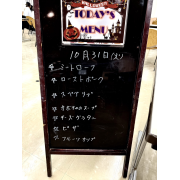 TODAY'S
MENU
10月31日(火)
ミートローフ
ローストポーク
スペアリブ
カボチャのスープ
チーズフォンデュ
ピザ
フルーツポンチ